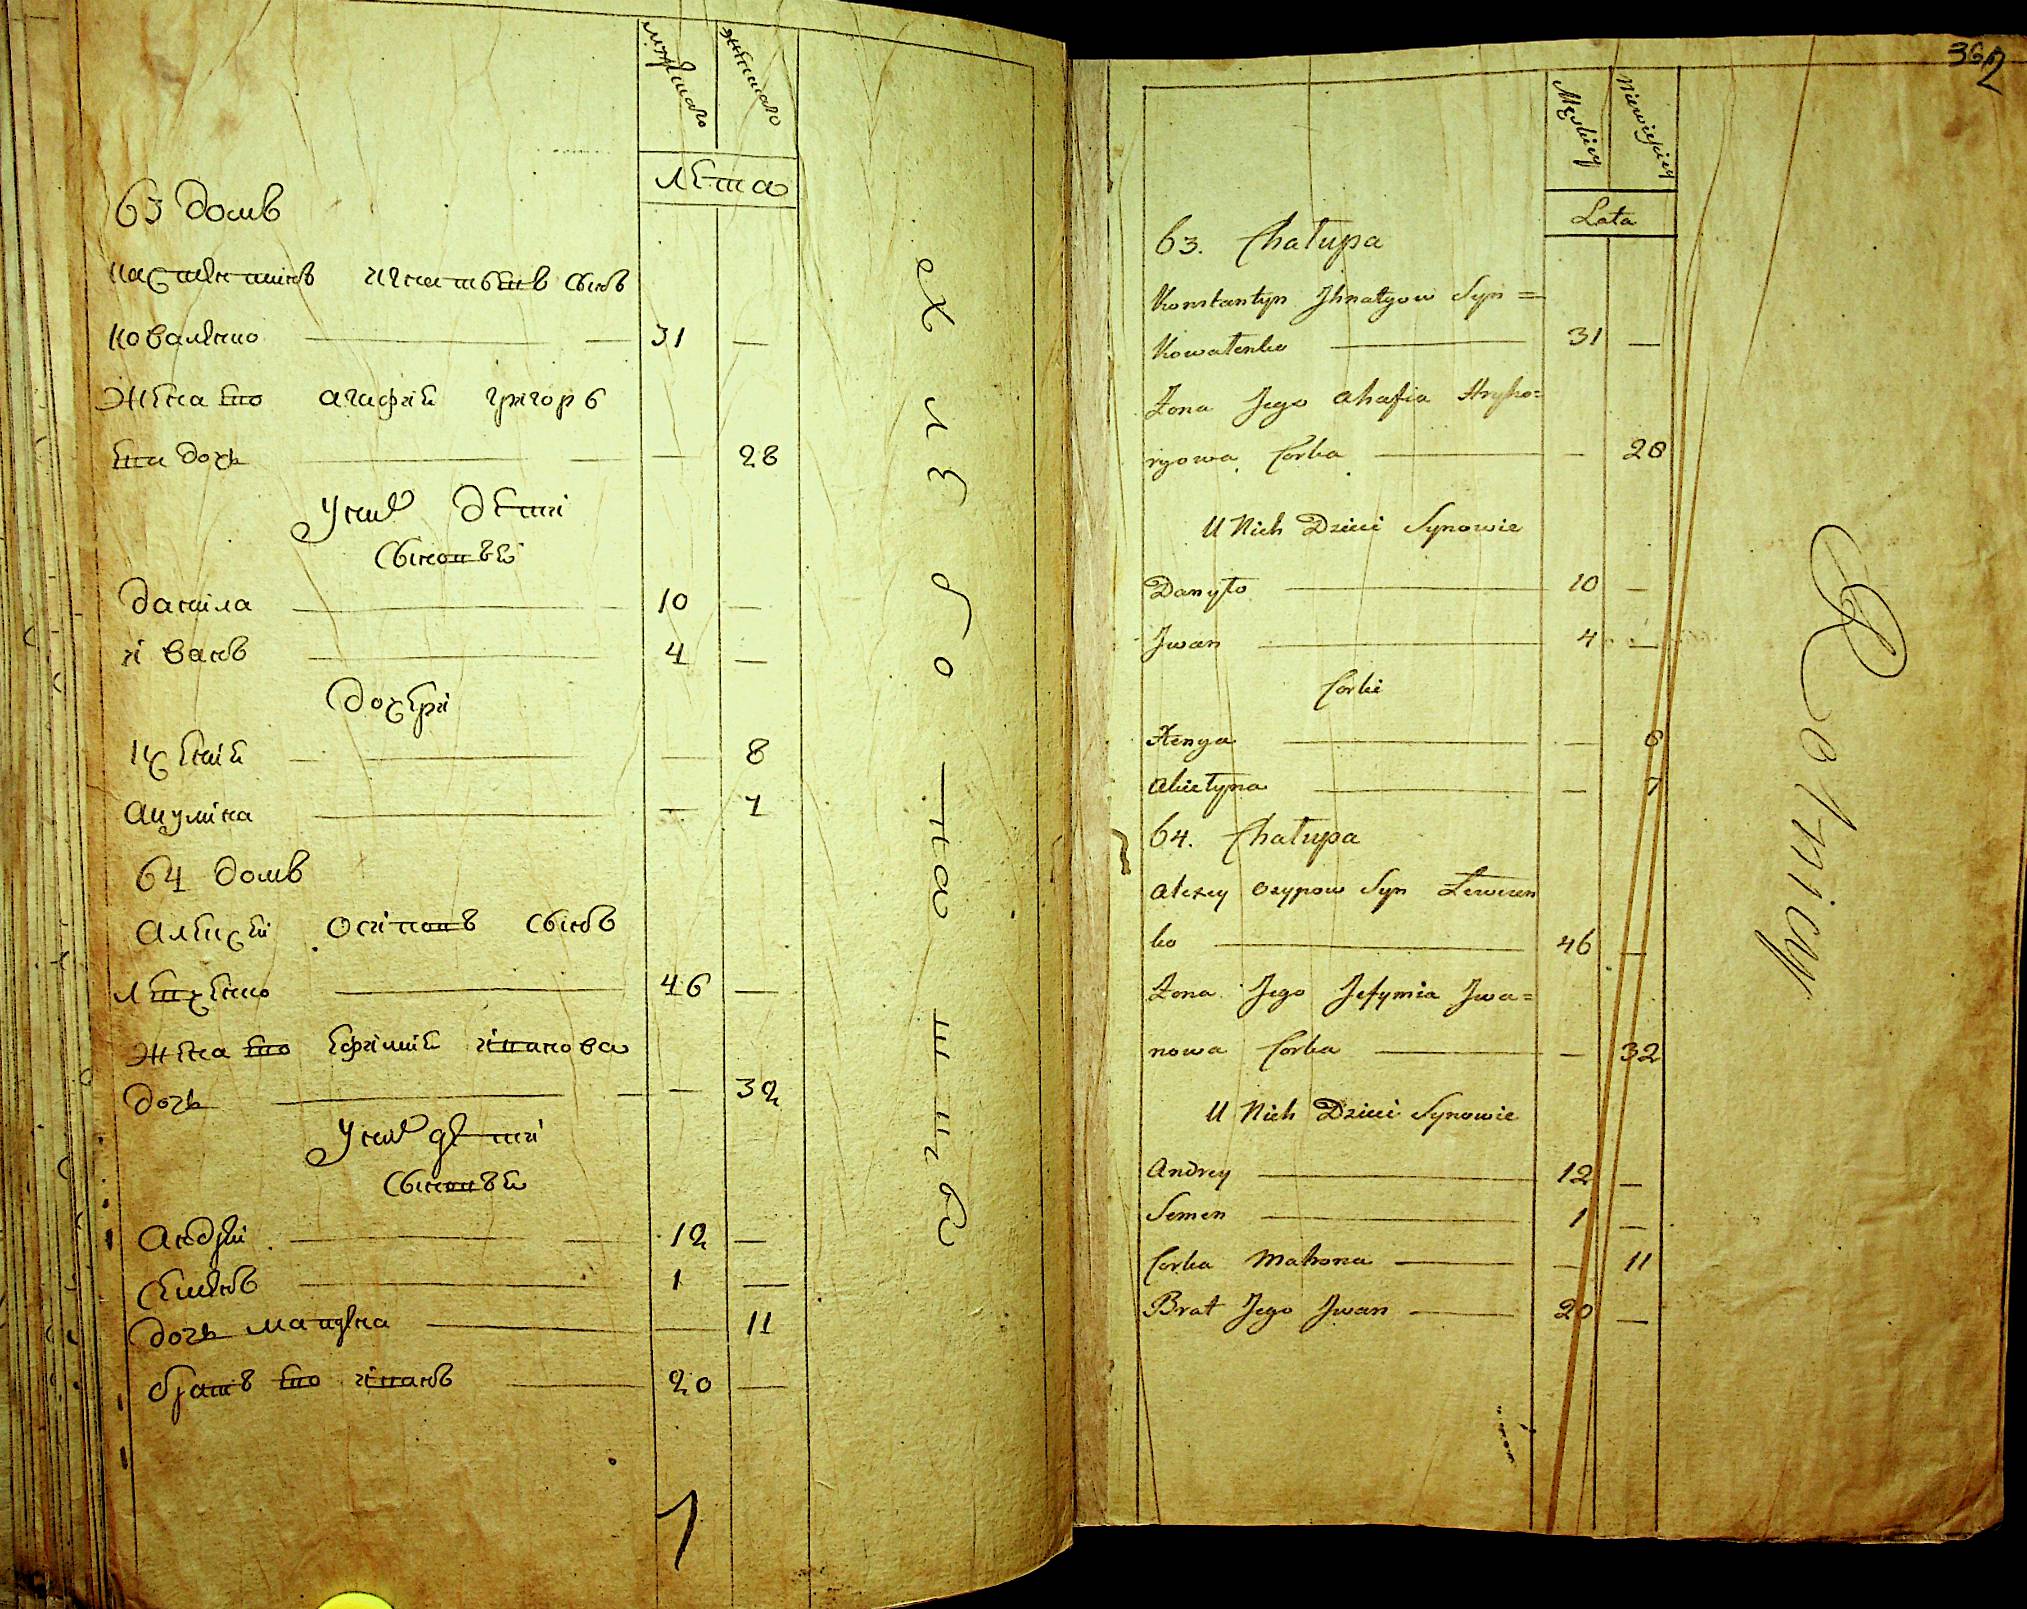 мужеска
женска
лета
63 домъ
Константинъ Игнатьевъ сынъ
Коваленко — 31 —
Жена его Агафия Григорь
ева дочь — — 28
У них дети
сыновья
Данила — 10 —
Иванъ — 4 —
дочери
Ксения — — 8
Акулина — — 7
64 домъ
Алексей Осиповъ сынъ
— 46 —
Жена его Ефимия Иванова
дочь — — 32
У них дети
сыновья
Андрей — 12 —
Семенъ — 1 —
дочь — — 11
братъ его Иванъ — 20 —
хлебопашец
367
Męskiey
Niewieskiey
Lata
63. Chałupa
Konstantyn Jhnatyow Syn =
Kowalenko — 31 —
Żona Jego Ahafia Hryho=
ryowa Corka — — 28
U Nich Dzieci Synowie
Danyło — 10 —
Jwan — 4 —
Corki
— — 8
— — 7
64. Chałupa
Alexey Osypow Syn
ko — 46 —
Żona Jego Jefymia Jwa=
nowa Corka — — 32
U Nich Dzieci Synowie
Andrey — 12 —
Semen — 1 —
Corka Matrona — — 11
Brat Jego Jwan — 20 —
Rolnicy